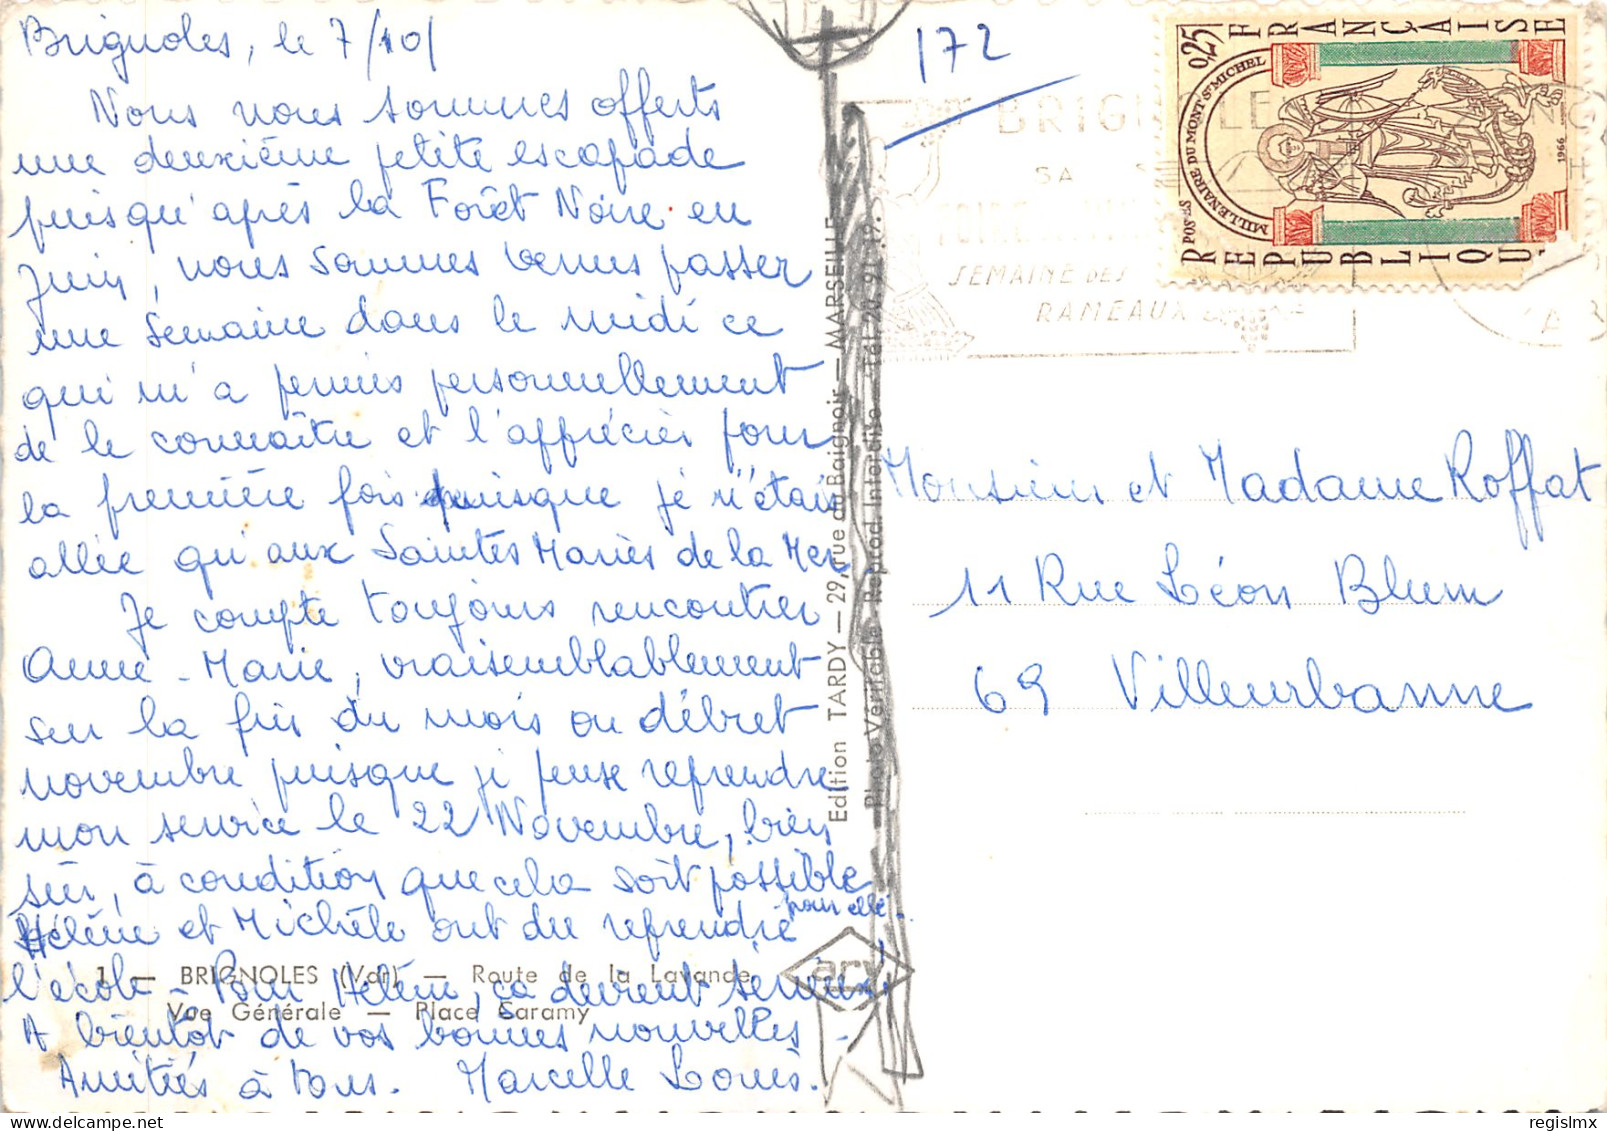 Brignoles, le 7/10/
Nous nous sommes offerts
une deuxième petite escapade
puisqu'après la Forêt Noire en
Juin, nous sommes venus passer
une semaine dans le midi ce
qui m'a permis personnellement
de le connaître et l'apprécier pour
la première fois puisque je n'étais
allée qu'aux Saintes Maries de la Mer
Je compte toujours rencontrer
Anne-Marie, vraisemblablement
sur la fin du mois ou début
novembre puisque je pense reprendre
mon service le 22 Novembre, bien
sûr, à condition que cela soit possible
pour elle.
Hélène et Michèle ont du reprendre
l'école - Pour Hélène, ça devient sérieux
A bientôt de vos bonnes nouvelles -
Amitiés à tous. Marcelle Louis.
1 — BRIGNOLES (Var) — Route de la Lavande
Vue Générale — Place Caramy
Edition TARDY — 29, rue du Baignoir — MARSEILLE
Photo Véritable - Reprod. Interdite - Tél. 20.91.19.
ary
172
REPUBLIQUE FRANÇAISE
POSTES 0,25
MILLENAIRE DU MONT St MICHEL
1966
BRIGNOLES
SA
FOIRE
SEMAINE DES
RAMEAUX
VAR
Monsieur et Madame Roffat
11 Rue Léon Blum
69 Villeurbanne
regislmx